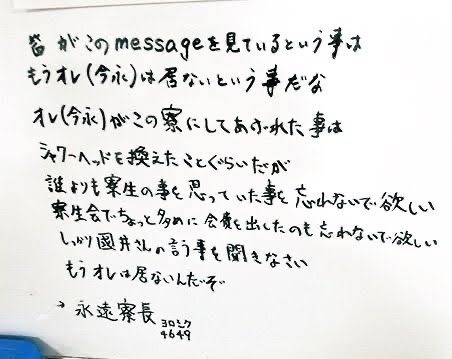 皆がこのmessageを見ているという事は
もうオレ(今永)は居ないという事だな
オレ(今永)がこの寮にしてあげれた事は
シャワーヘッドを換えたことぐらいだが
誰よりも寮生の事を思っていた事を忘れないで欲しい
寮生会でちょっと多めに会費を出したのも忘れないで欲しい
しっかり國井さんの言う事を聞きなさい
もうオレは居ないんだぞ
永遠寮長 ヨロシク
4649